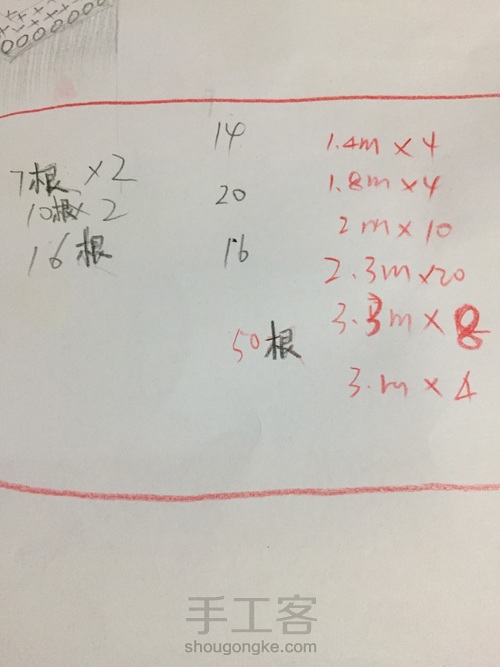 7根 × 2
10根 × 2
16根
14
20
16
50根
1.4m × 4
1.8m × 4
2m × 10
2.3m × 20
3.3m × 8
3.m × 4
手工客
shougongke.com